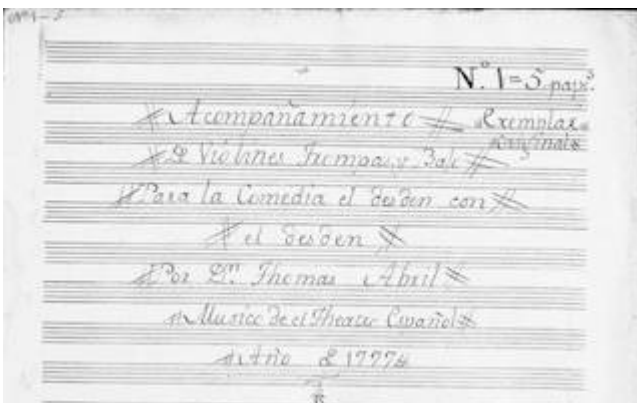 Nº 1-5
Nº. 1=5 papˢ.
Acompañamiento
Exemplar
original
De Violines Trompas, y Baxo
Para la Comedia el desden con
el desden
Por Dⁿ. Thomas Abril
Musico de el Theatro Español
Año de 1777